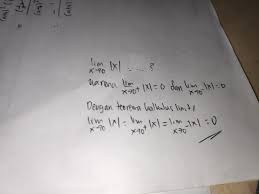 lim x→0 |x| = .... ?
karena lim x→0⁺ |x| = 0 dan lim x→0⁻ |x| = 0
Dengan teorema kalkulus limit
lim x→0 |x| = lim x→0⁺ |x| = lim x→0⁻ |x| = 0